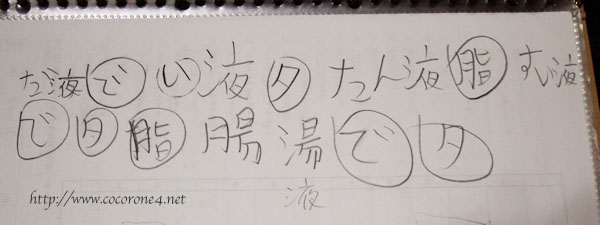 だ液 で い液 タ たん液 脂 すい液
で タ 脂 腸 湯 で タ
液
http://www.cocorone4.net